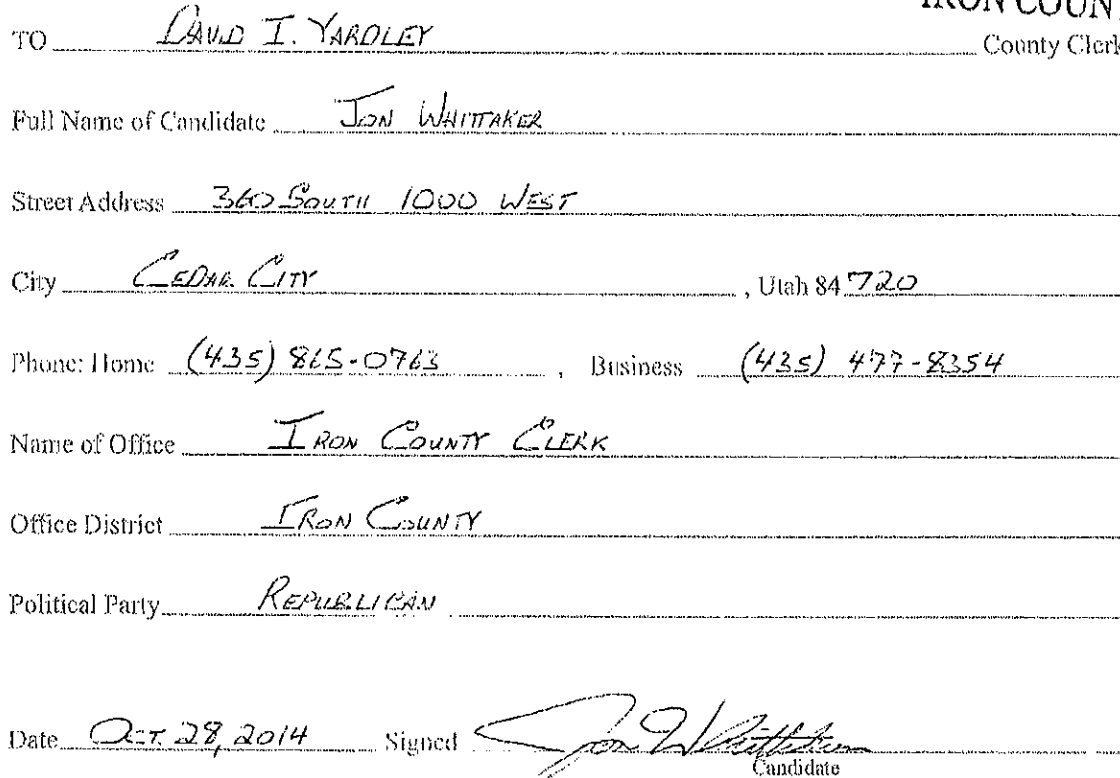 IRON COUN
TO DAVID I. YARDLEY County Clerk
Full Name of Candidate JON WHITTAKER
Street Address 360 SOUTH 1000 WEST
City CEDAR CITY , Utah 84720
Phone: Home (435) 865-0763 , Business (435) 477-8354
Name of Office IRON COUNTY CLERK
Office District IRON COUNTY
Political Party REPUBLICAN
Date OCT. 28, 2014 Signed Jon Whittaker
Candidate